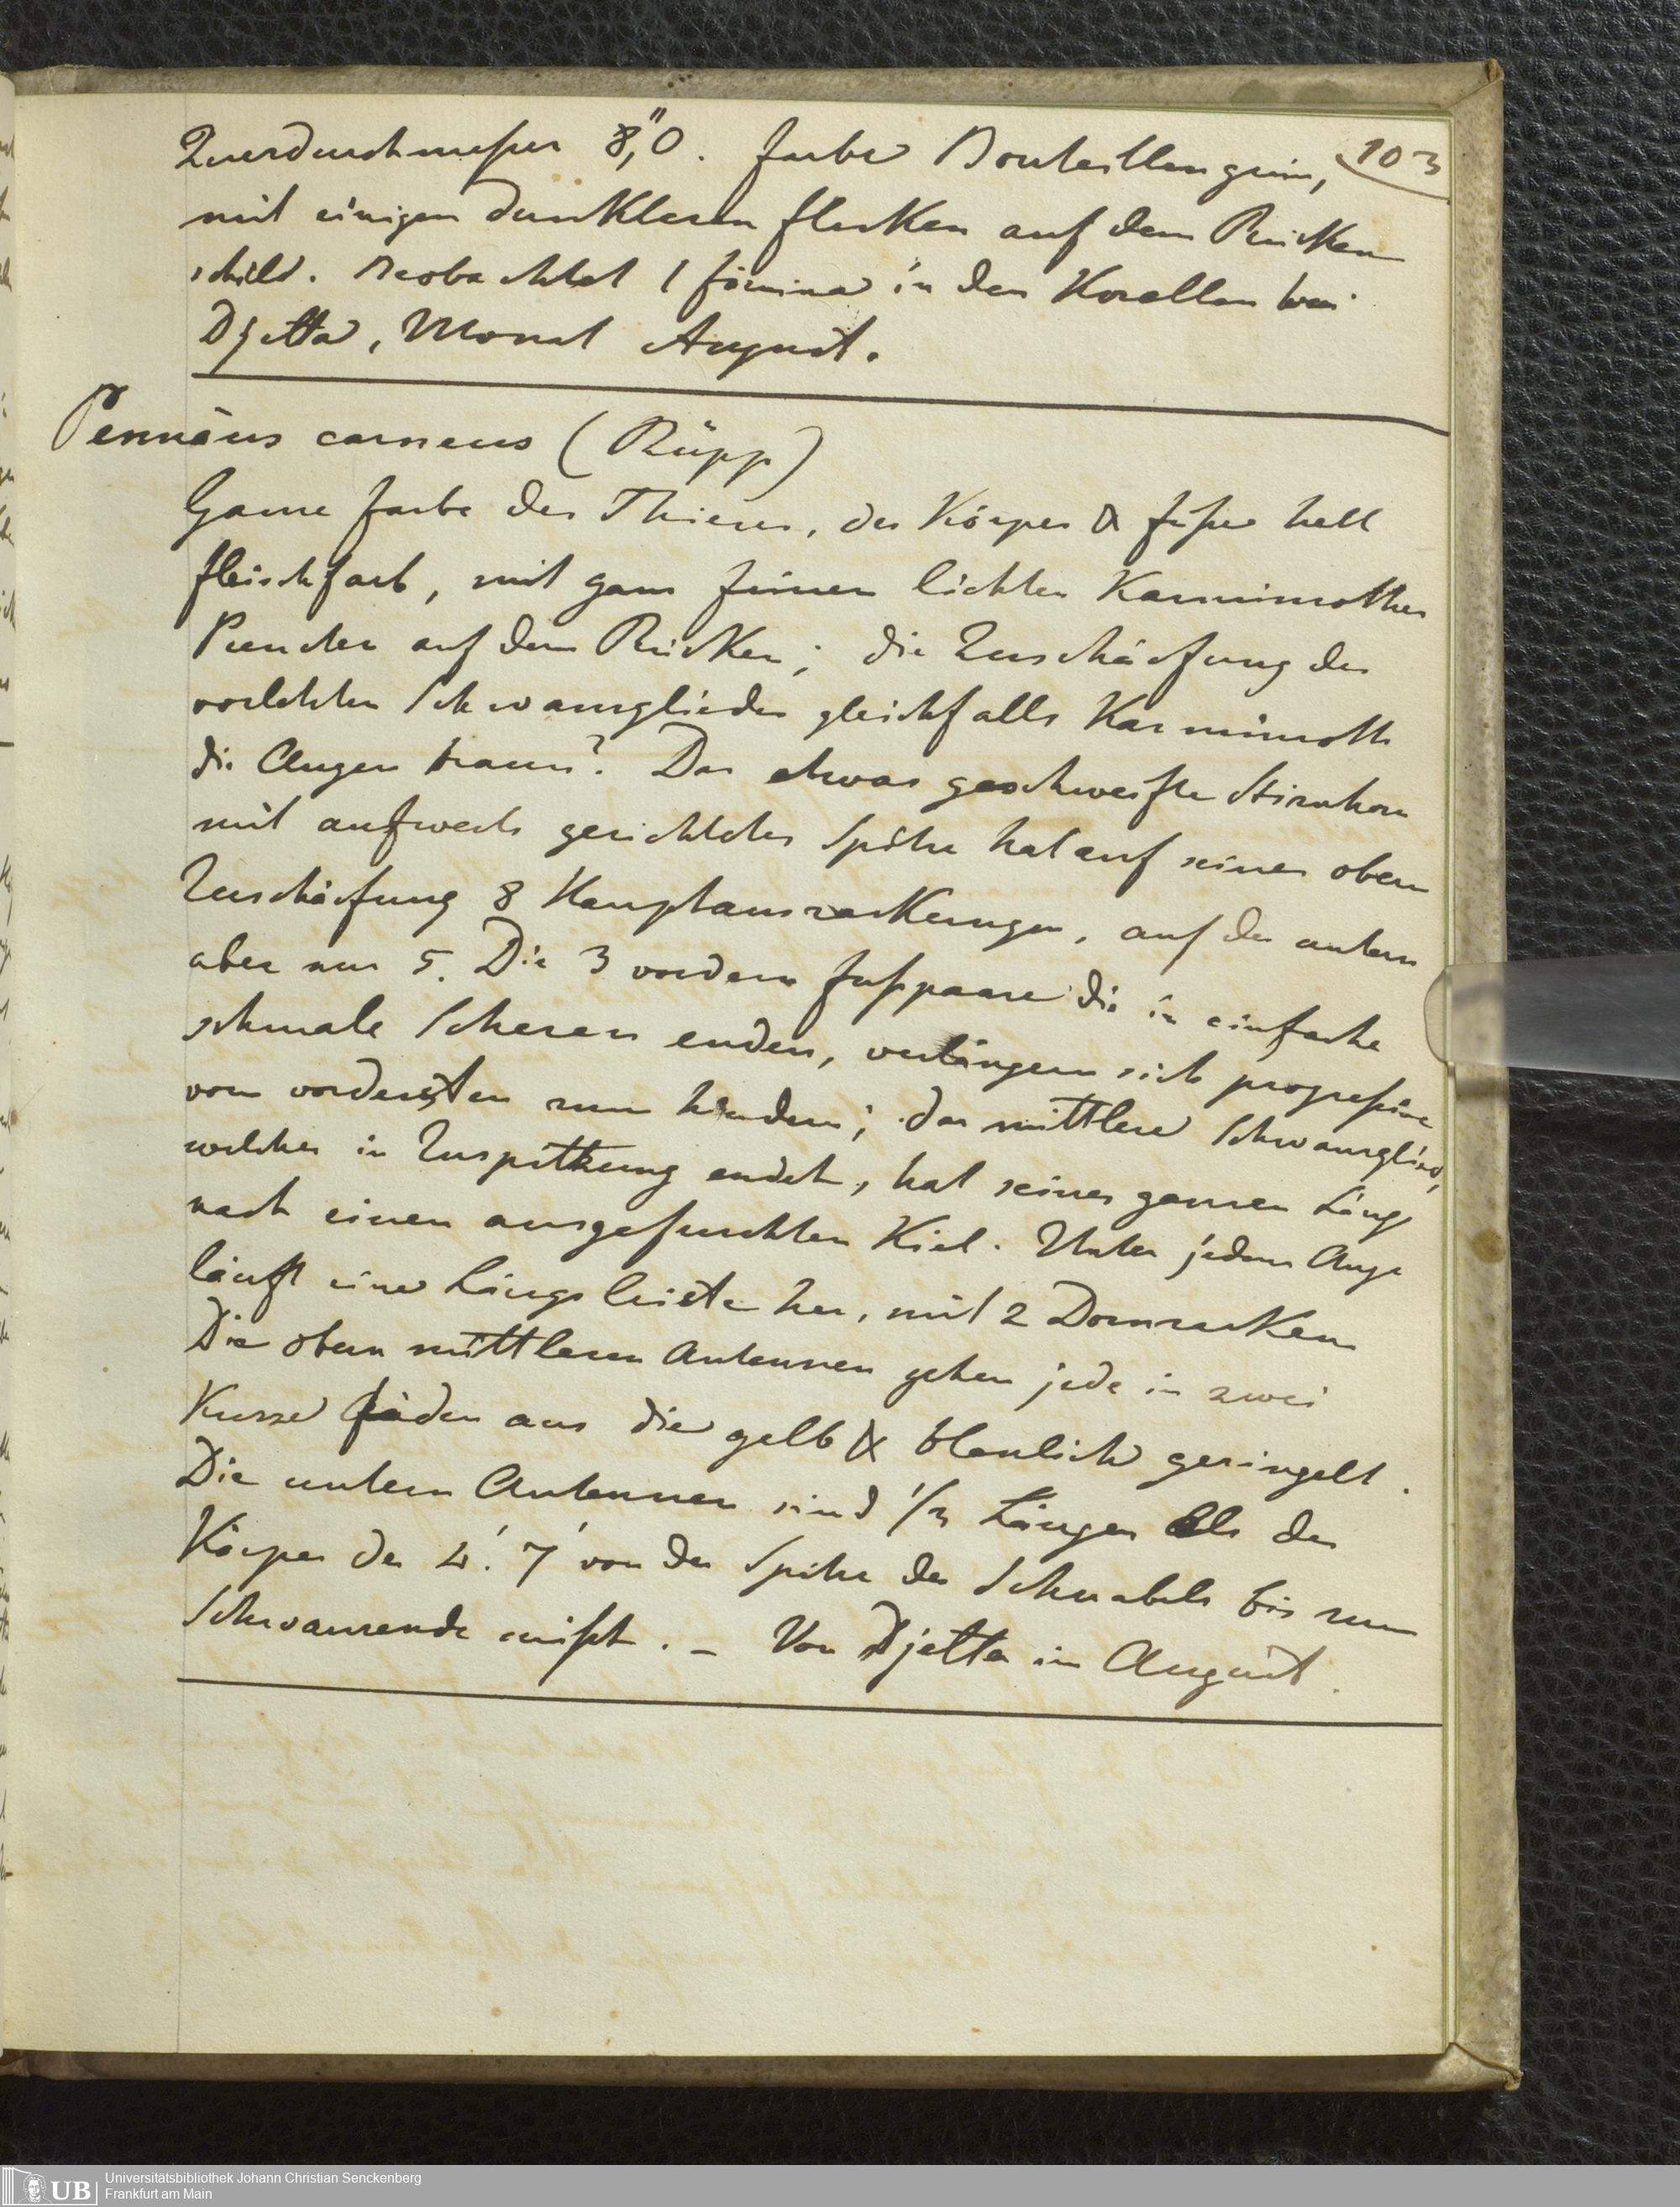 103
Querdurchmeßer 8,"0. Farbe Bouteillengrün,
mit einigen dunkleren flecken auf dem Rücken
schild. Beobachtet 1 fömina in den Korallen bei
Djetta, Monat August.
Pennäus carneus (Rüpp)
Ganze farbe des Thieres, des Körpers & füße hell
fleischfarb, mit ganz feinen lichten Karminrothen
Puncten auf dem Rücken; die Zuschärfung des
vorletzten Schwanzgliedes gleichfalls Karminroth
die Augen braun? Das etwas geschweifte Stirnhorn
mit aufwerts gerichteter Spitze hat auf seiner obern
Zuschärfung 8 Hauptauszackungen, auf der untern
aber nur 5. Die 3 vordern fußpaare die in einfache
schmale Scheren enden, verlängern sich progreßive
vom vordersten zum hindern; das mittlere Schwanzglied,
welches in Zuspitzung endet, hat seiner ganzen Länge
nach einen ausgefurchten Kiel. Unter jedem Auge
läuft eine Längsleiste her, mit 2 Dornzacken
Die obern mittleren Antennen gehen jede in zwei
Kurze fäden aus die gelb & blaulich geringelt.
Die untern Antennen sind 1/3 Länger als der
Körper der 4'. 7' von der Spitze des Schnabels bis zum
Schwanzende mißt. – Von Djetta im August.
Universitätsbibliothek Johann Christian Senckenberg
Frankfurt am Main
UB